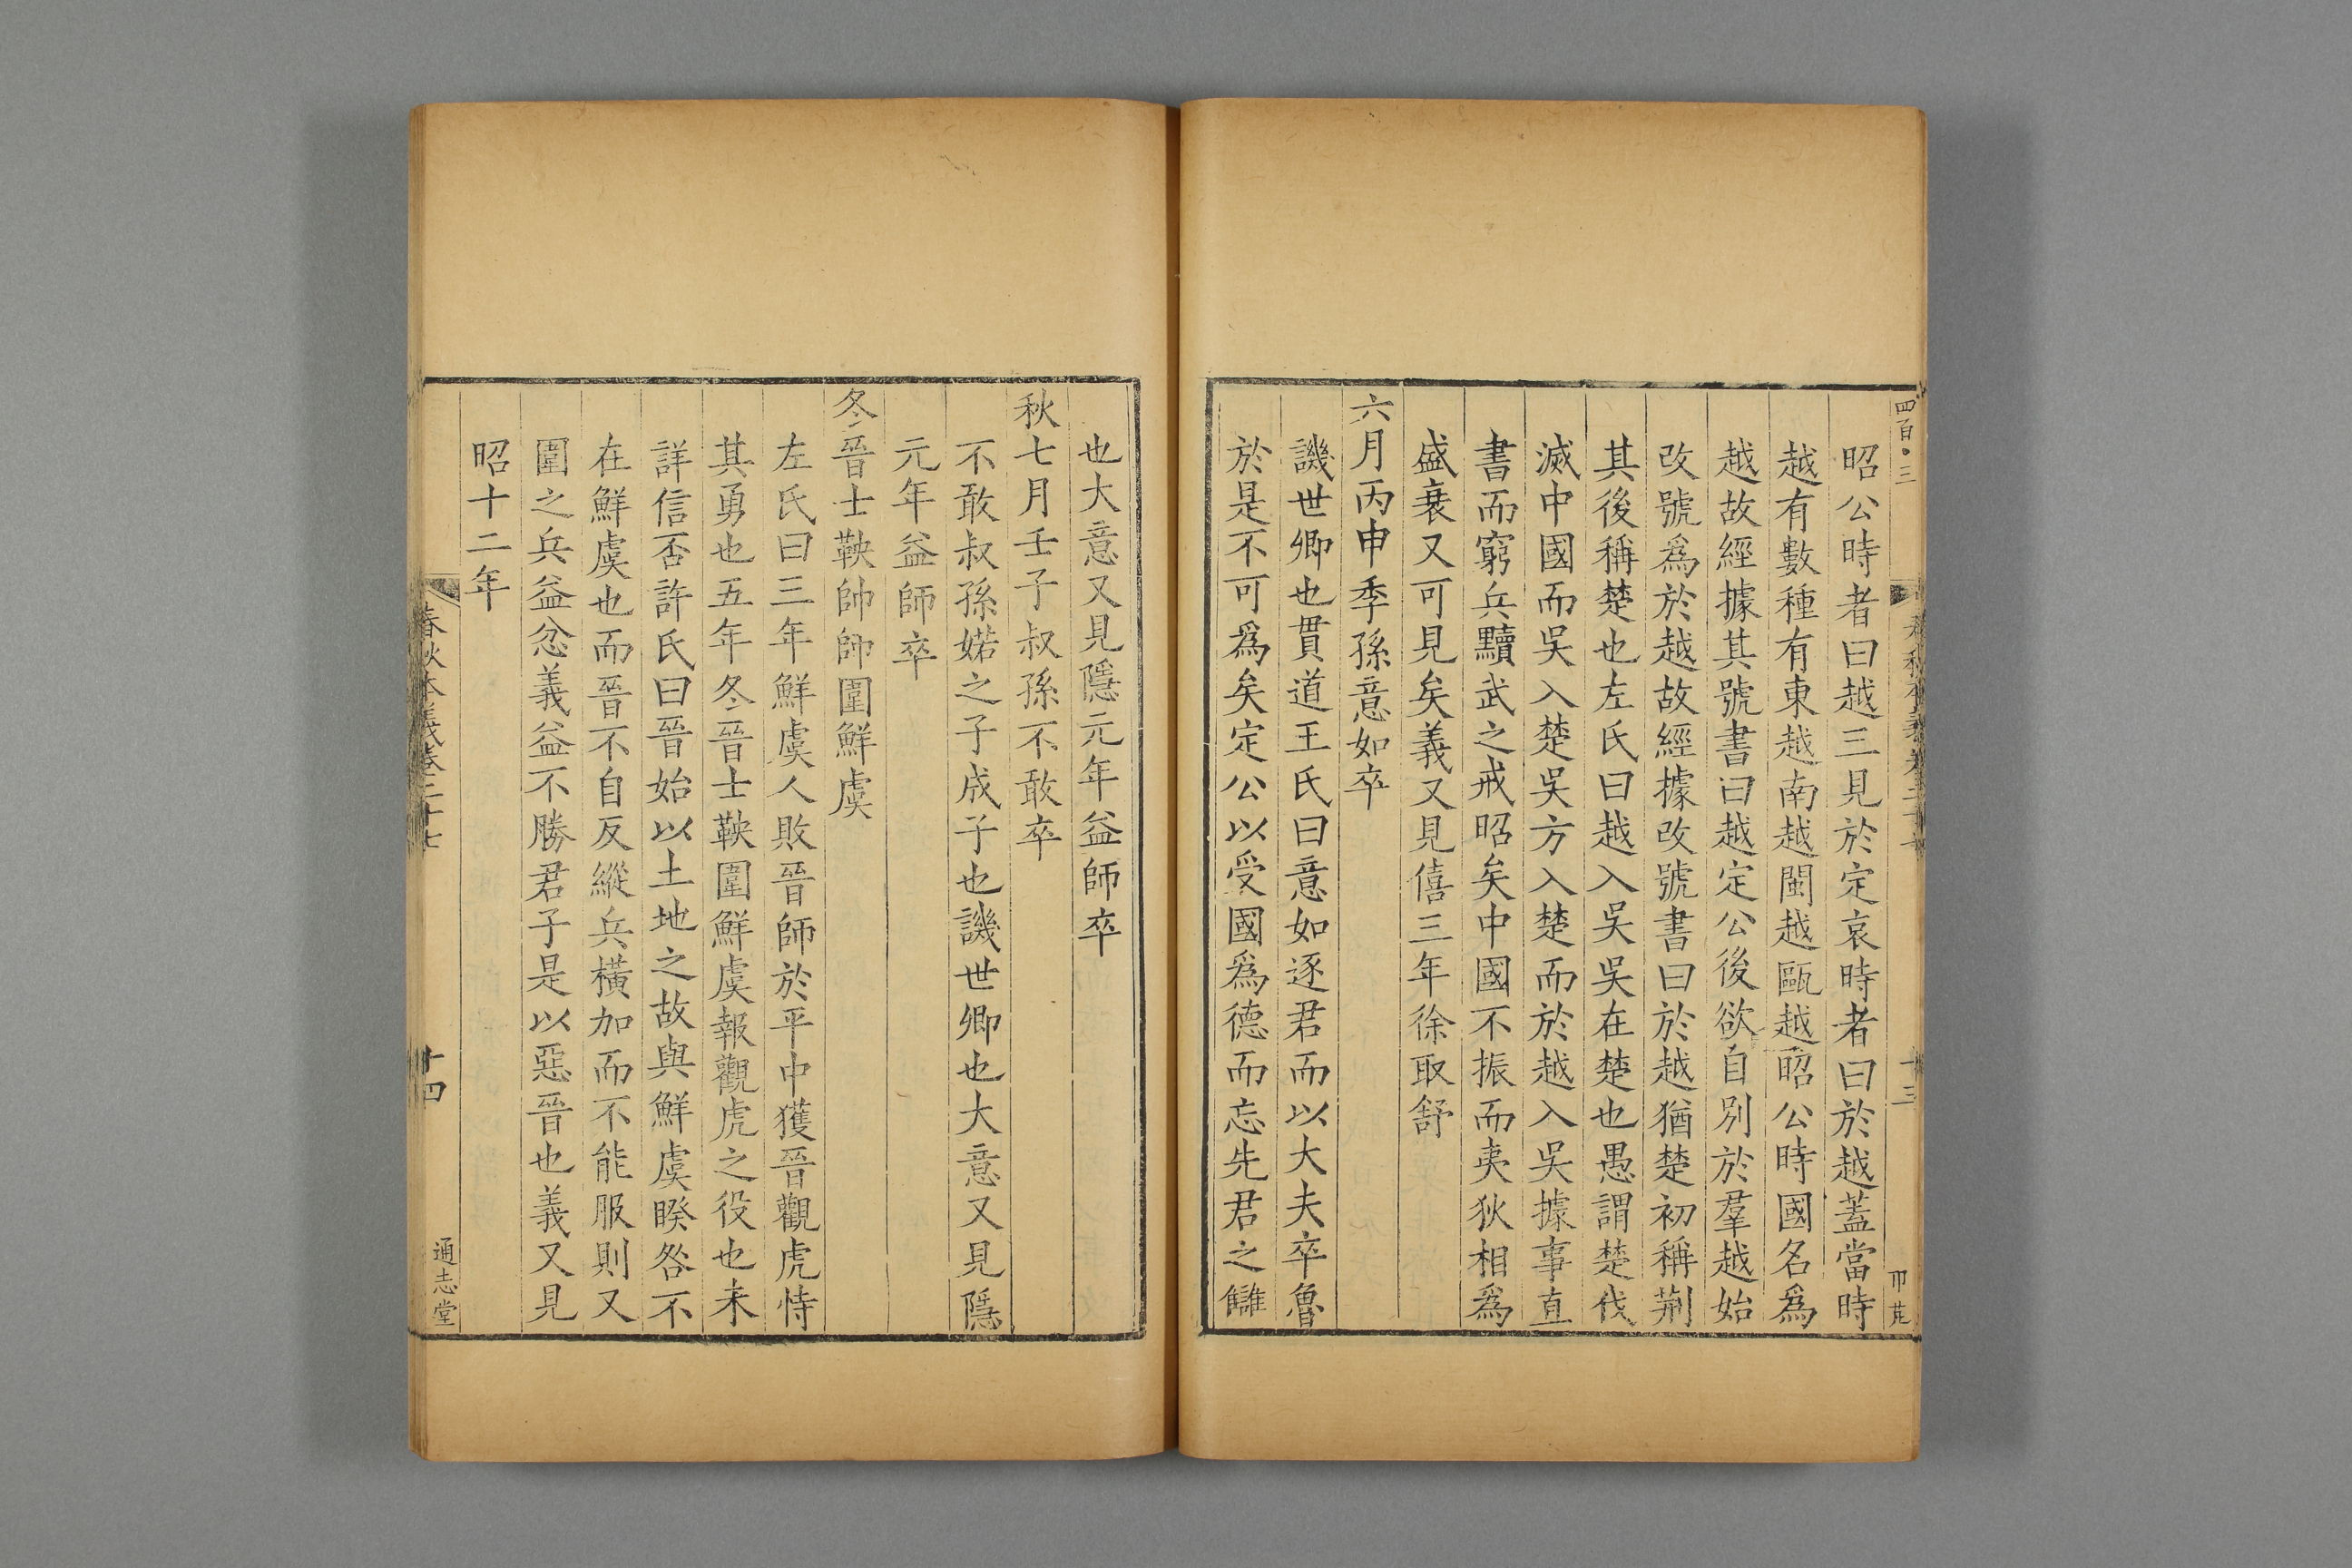 四百〇三
昭公時者曰越三見於定哀時者曰於越蓋當時
越有數種有東越南越閩越甌越昭公時國名爲
越故經據其號書曰越定公後欲自別於羣越始
改號爲於越故經據改號書曰於越猶楚初稱荆
其後稱楚也左氏曰越入吳吳在楚也愚謂楚伐
滅中國而吳入楚吳方入楚而於越入吳據事直
書而窮兵黷武之戒昭矣中國不振而夷狄相爲
盛衰又可見矣義又見僖三年徐取舒
六月丙申季孫意如卒
譏世卿也貫道王氏曰意如逐君而以大夫卒魯
於是不可爲矣定公以受國爲德而忘先君之讎
也大意又見隱元年益師卒
秋七月壬子叔孫不敢卒
不敢叔孫婼之子成子也譏世卿也大意又見隱
元年益師卒
冬晉士鞅帥師圍鮮虞
左氏曰三年鮮虞人敗晉師於平中獲晉觀虎恃
其勇也五年冬晉士鞅圍鮮虞報觀虎之役也未
詳信否許氏曰晉始以土地之故與鮮虞暌咎不
在鮮虞也而晉不自反縱兵橫加而不能服則又
圍之兵益忿義益不勝君子是以惡晉也義又見
昭十二年
春秋本義卷二十七
十四
通志堂